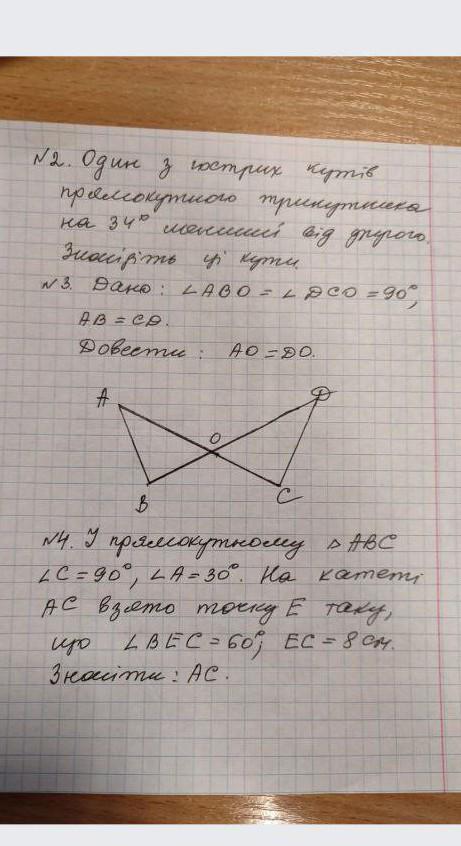 №2. Один з гострих кутів
прямокутного трикутника
на 34° менший від другого.
Знайдіть ці кути.
№3. Дано: ∠ABO = ∠DCO = 90°,
AB = CD.
Довести: AO = DO.
A
D
O
B
C
№4. У прямокутному △ABC
∠C = 90°, ∠A = 30°. На катеті
AC взято точку E таку,
що ∠BEC = 60°; EC = 8 см.
Знайти: AC.